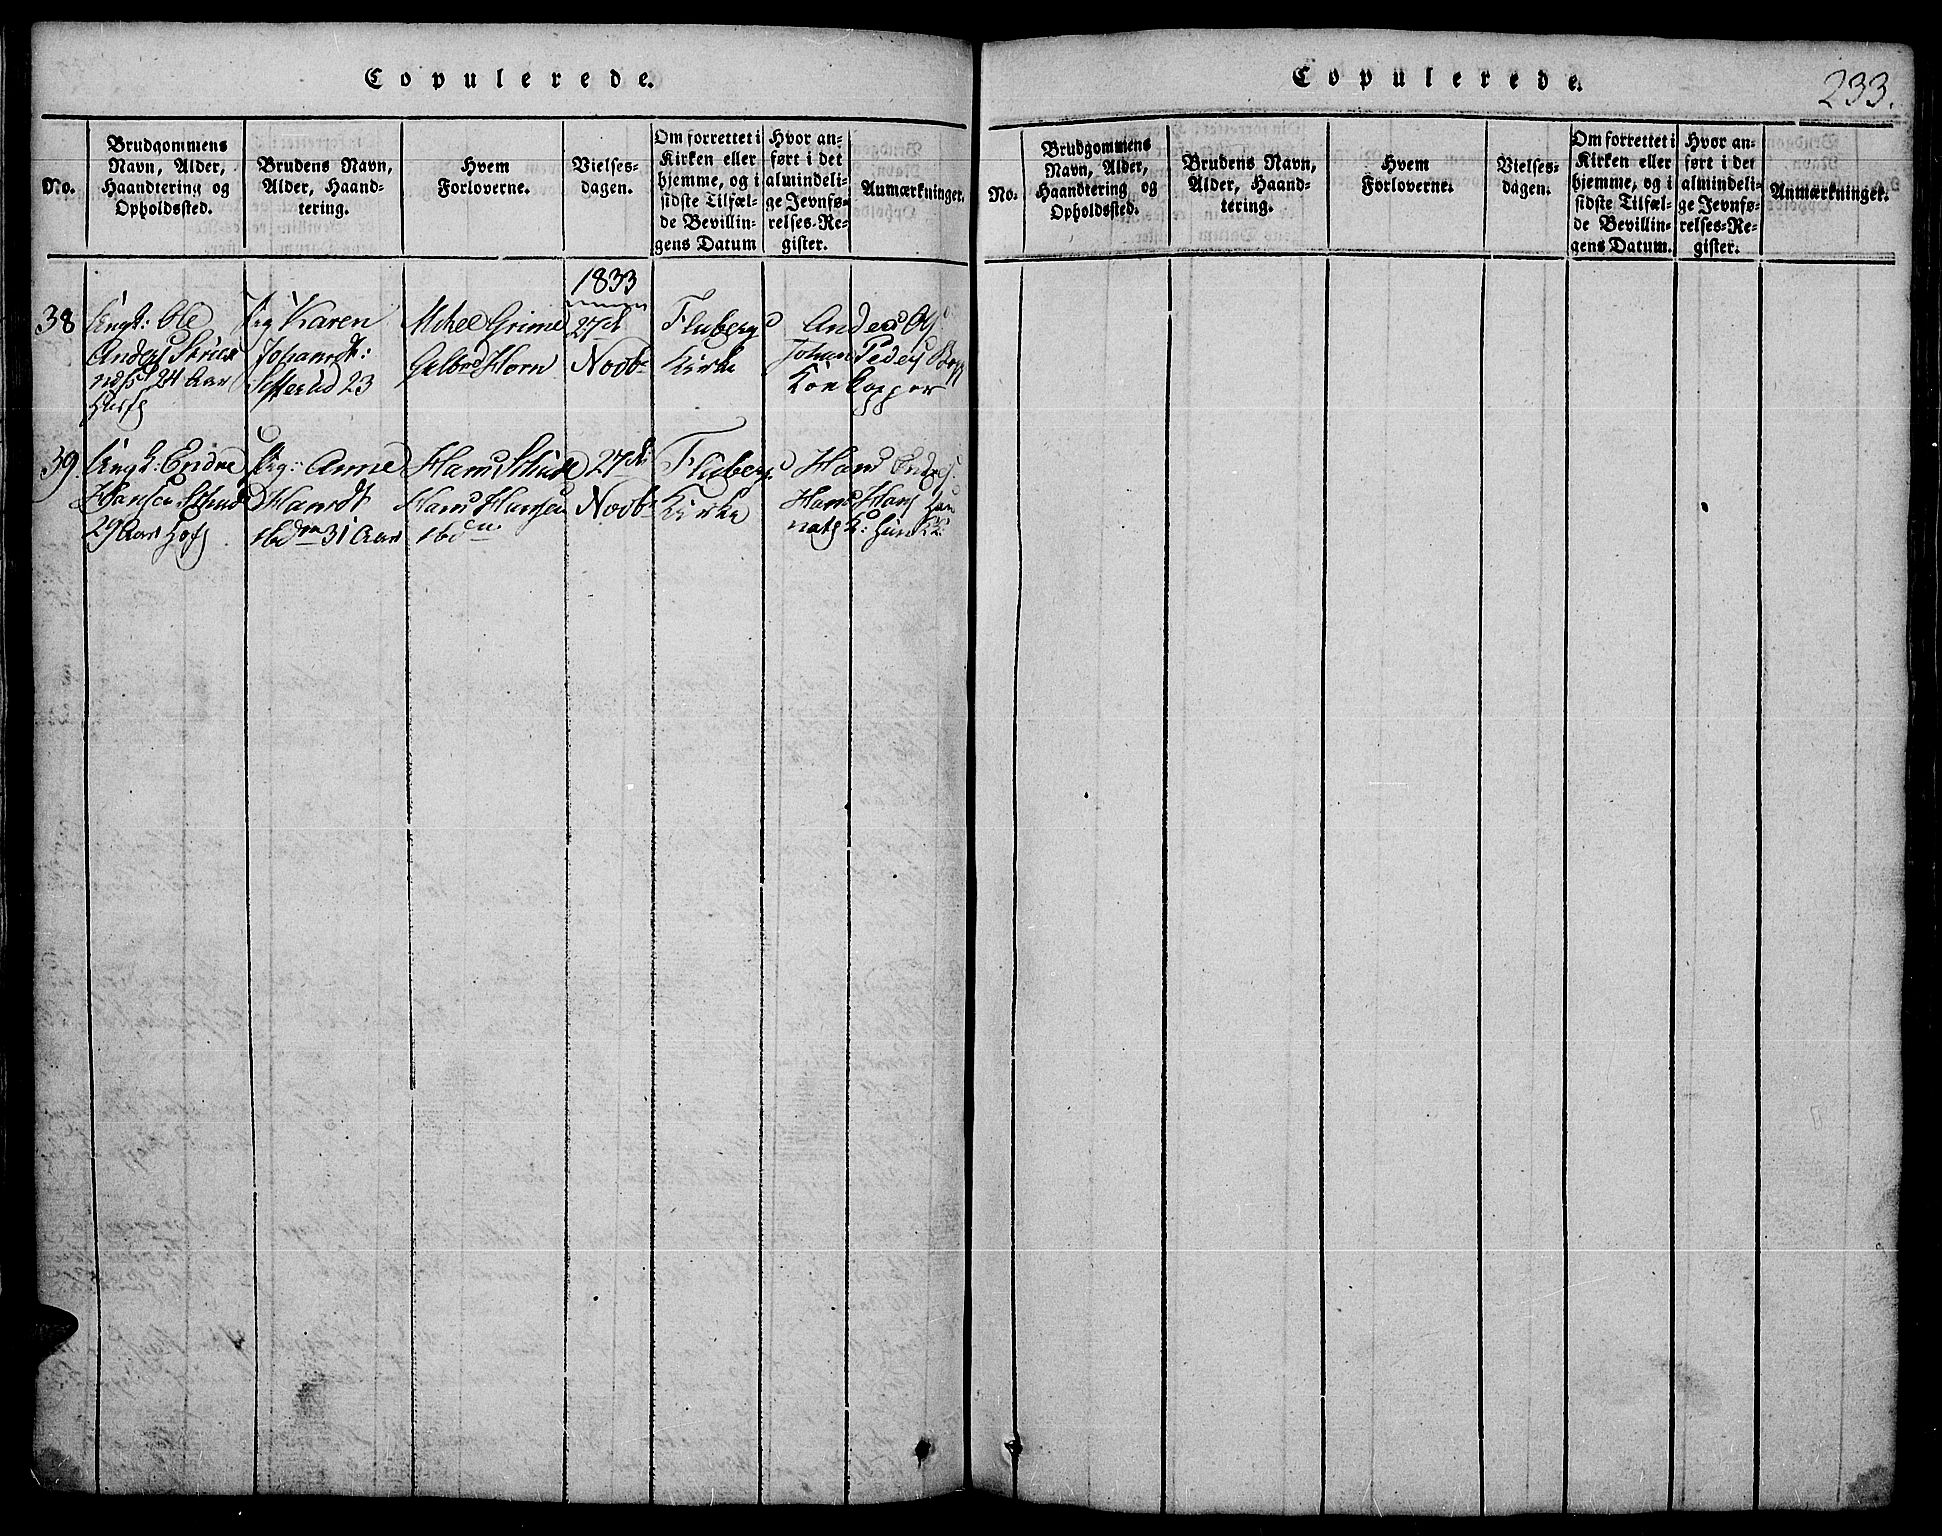 Copulerede.
No.
Brudgommens
Navn, Alder,
Haandtering og
Opholdssted.
Brudens Navn,
Alder, Haand-
tering.
Hvem
Forloverne.
Vielses-
dagen.
Om forrettet i
Kirken eller
hjemme, og i
sidste Tilfæl-
de Bevillin-
gens Datum
Hvor an-
ført i det
almindeli-
ge Jevnfø-
relses-Re-
gister.
Anmærkninger.
1833
38
Ungk: Ole
Anders
24 Aar
Pig Karen
Johansdt:
23
Mikel Grime
Horn
27de
Novbr
Fluberg
Kirke
Anders
Johan Peders
39.
Ungk: Endre
Hansen
29 Aar
Pig: Anne
Hansdt
ibdm 31 Aar
Hans
Hans Hansen
ibdm
27de
Novbr
Fluberg
Kirke
Hans
Hans Hans
Copulerede.
233.
No.
Brudgommens
Navn, Alder,
Haandtering og
Opholdssted.
Brudens Navn,
Alder, Haand-
tering.
Hvem
Forloverne.
Vielses-
dagen.
Om forrettet i
Kirken eller
hjemme, og i
sidste Tilfæl-
de Bevillin-
gens Datum.
Hvor an-
ført i det
almindeli-
ge Jevnfø-
relses-Re-
gister.
Anmærkninger.